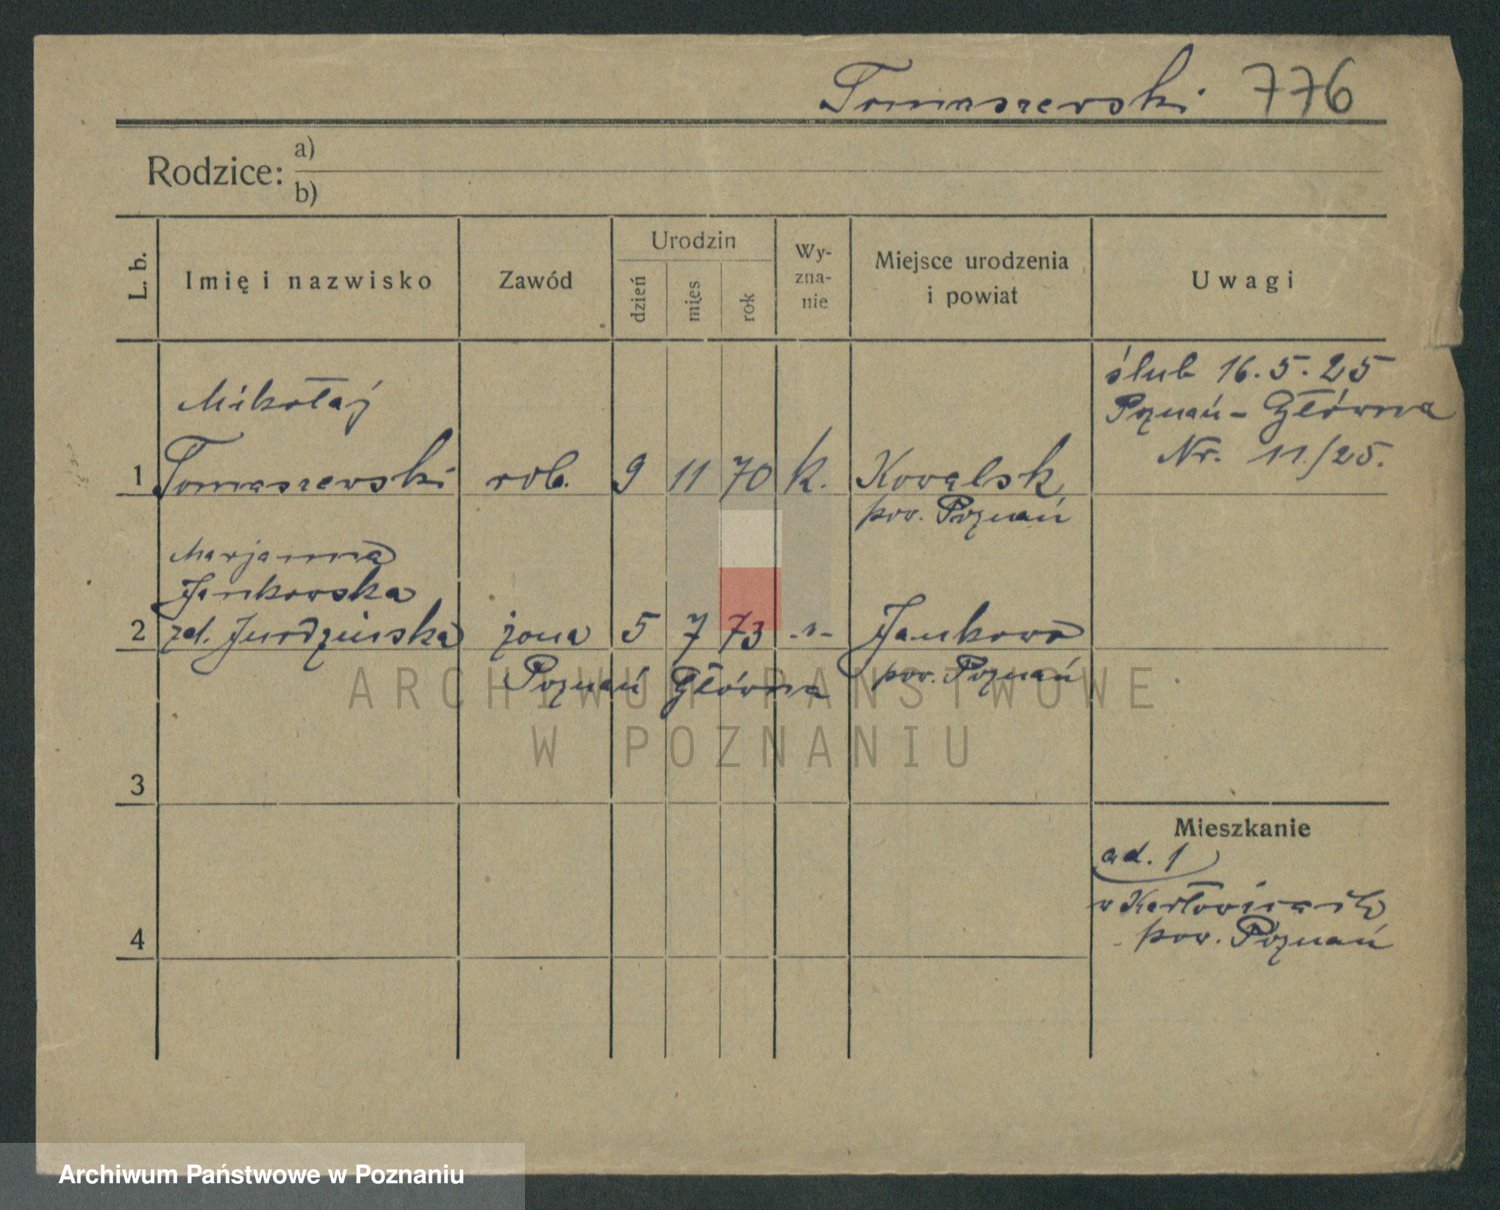 Tomaszewski 776
Rodzice: a)
b)
L. b.
Imię i nazwisko
Zawód
Urodzin
dzień
mięs
rok
Wy-
zna-
nie
Miejsce urodzenia
i powiat
Uwagi
ślub 16.5.25
Poznań - Główna
Nr. 11/25.
Mikołaj
1 Tomaszewski rob. 9 11 70 k.
pow. Poznań
Marjanna
Jankowska
2 zd. żona 5 7 73 -"- Jankowo
Poznań Główna pow. Poznań
ARCHIWUM PAŃSTWOWE
W POZNANIU
3
Mieszkanie
ad. 1
w
pow. Poznań
4
Archiwum Państwowe w Poznaniu